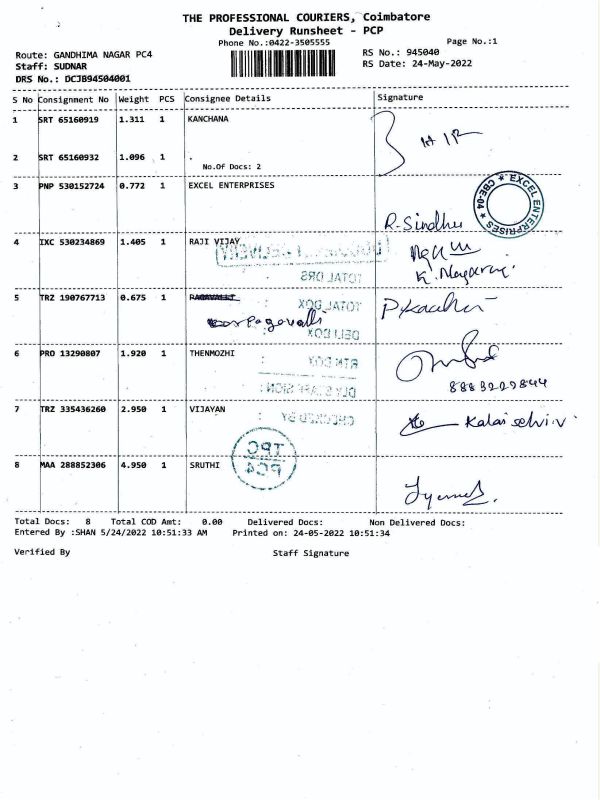 THE PROFESSIONAL COURIERS, Coimbatore
Delivery Runsheet - PCP
Phone No.:0422-3505555
Page No.:1
Route: GANDHIMA NAGAR PC4
RS No.: 945040
Staff: SUDNAR
RS Date: 24-May-2022
DRS No.: DCJB94504001
S No Consignment No Weight PCS Consignee Details Signature
1 SRT 65160919 1.311 1 KANCHANA
2 SRT 65160932 1.096 1 .
No.Of Docs: 2
3 PNP 530152724 0.772 1 EXCEL ENTERPRISES
EXCEL ENTERPRISES ★ CBE-04 ★
R-Sindhu
4 IXC 530234869 1.405 1 RAJI VIJAY
K. Nagaraj.
TOTAL DRS
5 TRZ 190767713 0.675 1
TOTAL DOX
Pagavalli
DELI DOX
6 PRO 13290807 1.920 1 THENMOZHI
RTN DOX
8883229844
DLY STAFF SIGN :
7 TRZ 335436260 2.950 1 VIJAYAN
CHECKED BY :
Kalai selvi.v
TPC
PC4
8 MAA 288852306 4.950 1 SRUTHI
Total Docs: 8 Total COD Amt: 0.00 Delivered Docs: Non Delivered Docs:
Entered By :SHAN 5/24/2022 10:51:33 AM Printed on: 24-05-2022 10:51:34
Verified By Staff Signature